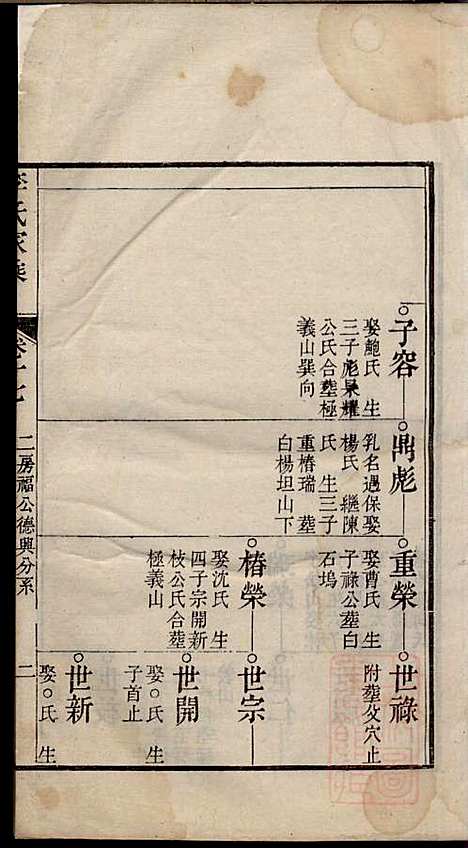 子容
娶鮑氏 生
三子彪杲耀
公氏合塟極
義山巽向
鼎彪
乳名遇保娶
楊氏 繼陳
氏 生三子
重椿瑞 塟
白楊坦山下
重榮
娶曹氏 生
子祿公塟白
石塢
世祿
附塟父穴止
椿榮
娶沈氏 生
四子宗開新
枝公氏合塟
極義山
世宗
世開
娶○氏 生
子首止
世新
娶○氏 生
李氏家乘
卷十七
二房福公德興分系
二